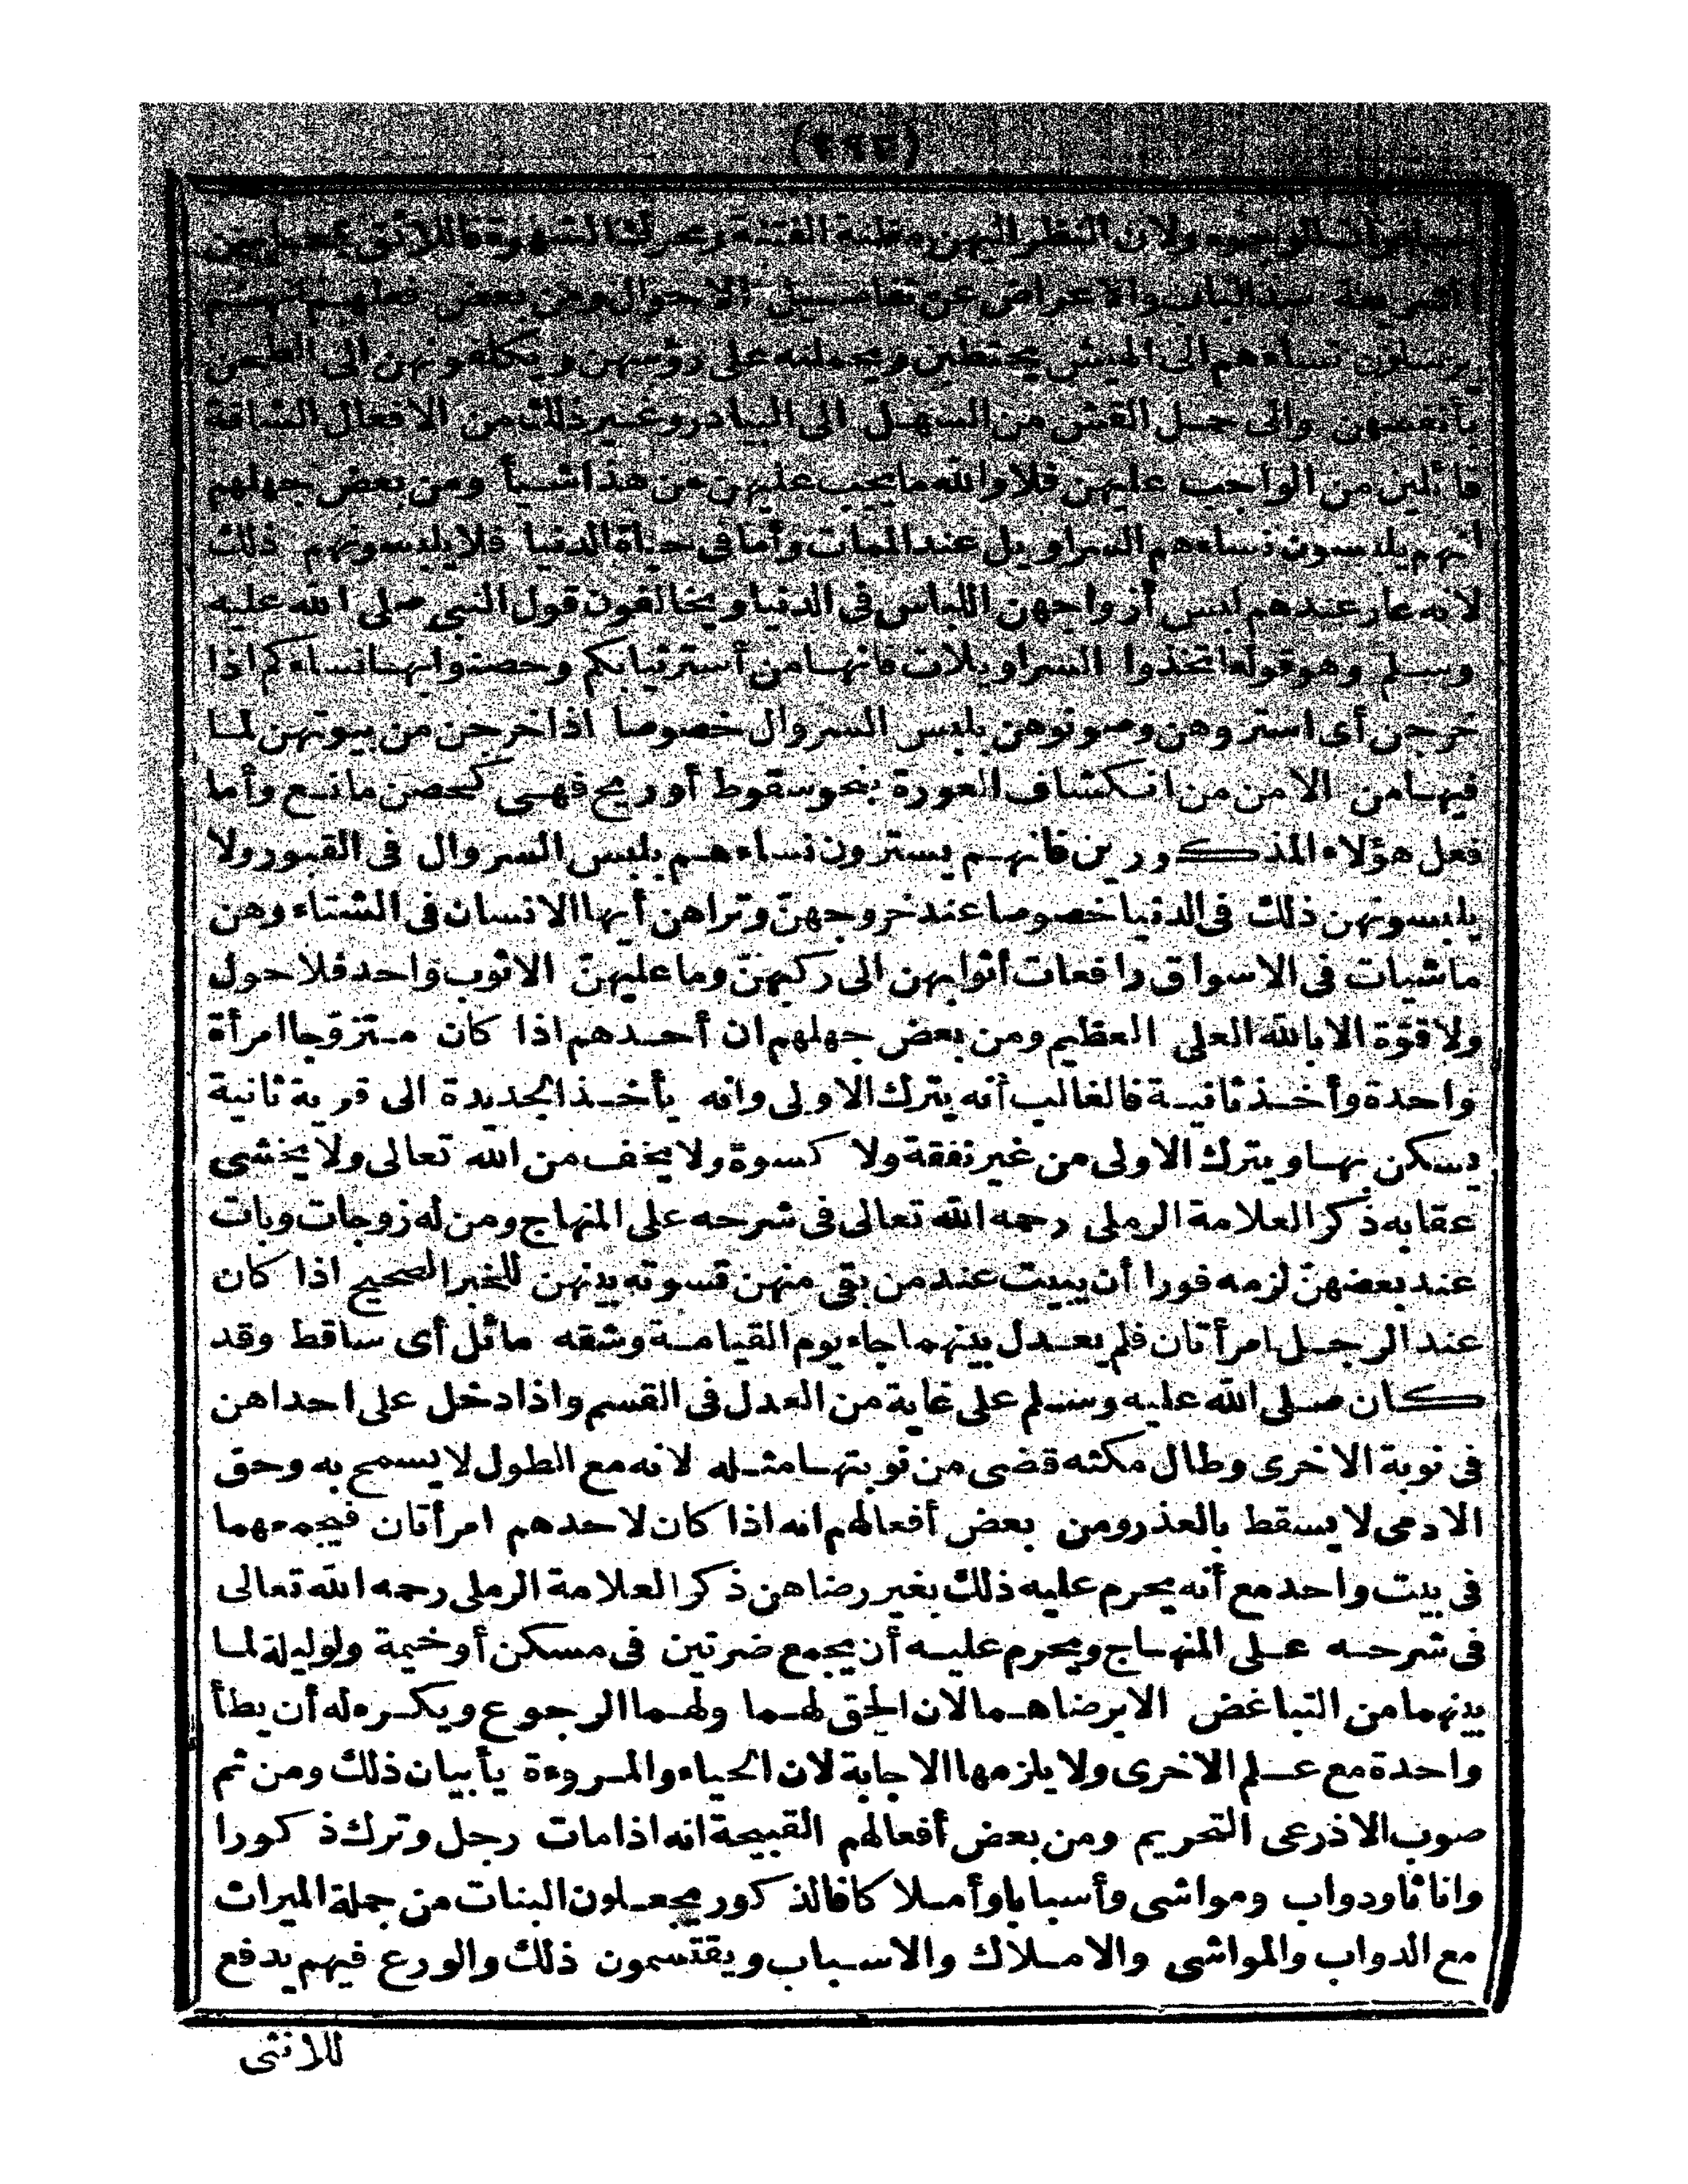 سافرات الوجوه ولان النظر اليهن مظنة الفتنة ومحرك الشهوة فاللائق بمحاسن
الشريعة سد الباب والاعراض عن تفاصيل الاحوال ومن بعض فعلهم انهم
يرسلون نساءهم الى الحيش يحتطبن ويحملنه على رؤسهن ويكلفونهن الى الطحن
بأنفسهن والى حمل القش من السهل الى البيادر وغير ذلك من الافعال الشاقة
قائلين من الواجب عليهن فلا والله ما يجب عليهن من هذا شيأ ومن بعض جهلهم
انهم يلبسون نساءهم السراويل عند الممات وأما فى حياة الدنيا فلا يلبسونهم ذلك
لانه عار عندهم لبس أزواجهن اللباس فى الدنيا ويخالفون قول النبى صلى الله عليه
وسلم وهو قوله اتخذوا السراويلات فانها من أستر ثيابكم وحصنوا بها نساءكم اذا
خرجن أى استروهن وصونوهن بلبس السروال خصوصا اذا خرجن من بيوتهن لما
فيها من الامن من انكشاف العورة بنحو سقوط أو ريح فهى كحصن مانع وأما
فعل هؤلاء المذكورين فانهم يسترون نساءهم بلبس السروال فى القبور ولا
يلبسونهن ذلك فى الدنيا خصوصا عند خروجهنّ وتراهن أيها الانسان فى الشتاء وهن
ماشيات فى الاسواق رافعات أثوابهن الى ركبهنّ وما عليهنّ الاثوب واحد فلا حول
ولا قوّة الا بالله العلى العظيم ومن بعض جهلهم ان أحدهم اذا كان متزوّجا امرأة
واحدة وأخذ ثانية فالغالب أنه يترك الاولى وانه يأخذ الجديدة الى قرية ثانية
يسكن بها ويترك الاولى من غير نفقة ولا كسوة ولا يخف من الله تعالى ولا يخشى
عقابه ذكر العلامة الرملى رحمه الله تعالى فى شرحه على المنهاج ومن له زوجات وبات
عند بعضهنّ لزمه فورا أن يبيت عند من بقى منهن تسوته بينهن للخبر الصحيح اذا كان
عند الرجل امرأتان فلم يعدل بينهما جاء يوم القيامة وشقه مائل أى ساقط وقد
كان صلى الله عليه وسلم على غاية من العدل فى القسم واذا دخل على احداهن
فى نوبة الاخرى وطال مكثه قضى من نوبتها مثله لانه مع الطول لا يسمح به وحق
الادمى لا يسقط بالعذر ومن بعض أفعالهم انه اذا كان لاحدهم امرأتان فيجمعهما
فى بيت واحد مع أنه يحرم عليه ذلك بغير رضاهن ذكر العلامة الرملى رحمه الله تعالى
فى شرحه على المنهاج ويحرم عليه أن يجمع ضرتين فى مسكن أو خيمة ولو ليلة لما
بينهما من التباغض الا برضاهما لان الحق لهما ولهما الرجوع ويكره له أن يطأ
واحدة مع علم الاخرى ولا يلزمها الاجابة لان الحياء والمروءة يأبيان ذلك ومن ثم
صوب الاذرعى التحريم ومن بعض أفعالهم القبيحة انه اذا مات رجل وترك ذكورا
واناثا ودواب ومواشى وأسبابا وأملاكا فالذكور يجعلون البنات من جملة الميراث
مع الدواب والمواشى والاملاك والاسباب ويقتسمون ذلك والورع فيهم يدفع
للانثى